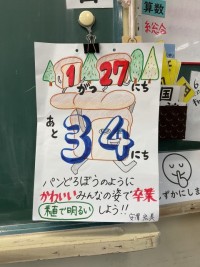 1がつ27にち
あと
34にち
パンどろぼうのように
かわいいみんなの姿で卒業
極で明るい しよう!!
算数
総合
ずかにしま